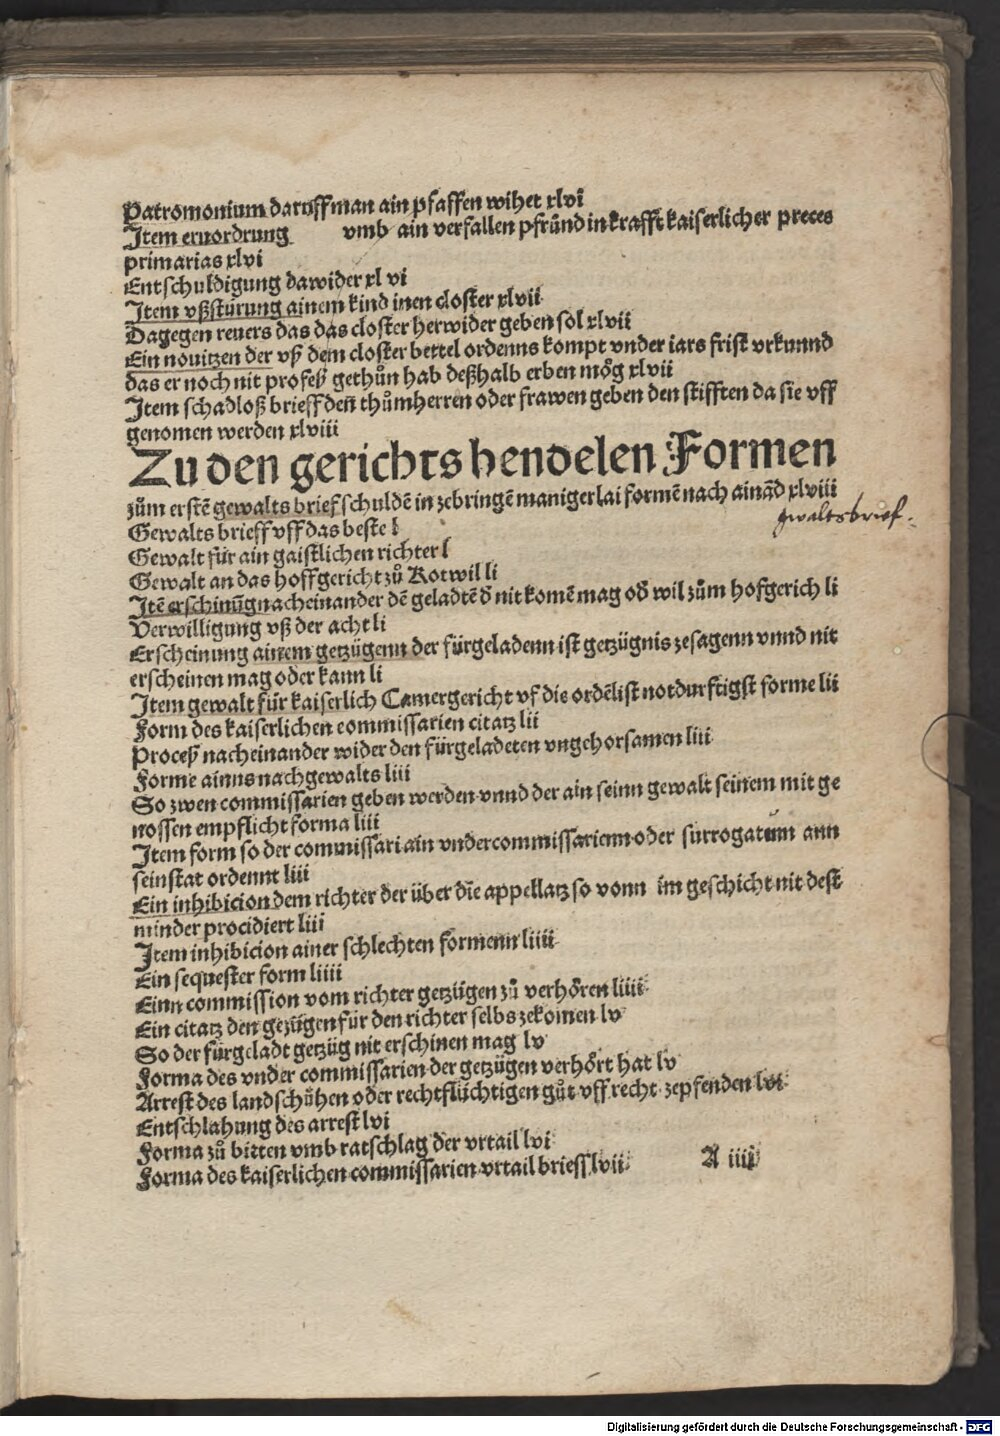 Patromonium daruff man ain pfaffen wihet xlvi
Item eruordrung vmb ain verfallen pfrůnd in krafft kaiserlicher preces
primarias xlvi
Entschuldigung dawider xl vi
Item vßstürung ainem kind inen closter xlvii
Dagegen reuers das das closter herwider geben sol xlvii
Ein nouitzen der vß dem closter bettel ordenns kompt vnder iars frist vrkunnd
das er noch nit profeß gethůn hab deßhalb erben mög xlvii
Item schadloß brieff deñ thůmherren oder frawen geben den stifften da sie vff
genomen werden xlviii
Zu den gerichts hendelen Formen
zům erstē gewalts brief schuldē in zebringē manigerlai formē nach ainād xlviii
gwaltsbrief.
Gewalts brieff vff das beste l
Gewalt für ain gaistlichen richter l
Gewalt an das hoffgericht zů Rotwil li
Itē erschinūg nacheinander dē geladtē d̄ nit komē mag od̄ wil zům hofgerich li
Verwilligung vß der acht li
Erscheinung ainem getzügenn der fürgeladenn ist getzügnis zesagenn vnnd nit
erscheinen mag oder kann li
Item gewalt für kaiserlich Camergericht vf die ordēlist notdurftigst forme lii
Form des kaiserlichen commissarien citatz lii
Proceß nacheinander wider den fürgeladeten vngehorsamen liii
Forme ainns nachgewalts liii
So zwen commissarien geben werden vnnd der ain seinn gewalt seinem mit ge
nossen empflicht forma liii
Item form so der commissari ain vndercommissarienn oder surrogatum ann
sein stat ordennt liii
Ein inhibicion dem richter der über die appellatz so vonn im geschicht nit dest
minder procidiert liii
Item inhibicion ainer schlechten formenn liiii
Ein sequester form liiii
Einn commission vom richter getzügen zů verhören liiii
Ein citatz den gezügen für den richter selbs zekomen lv
So der fürgeladt getzüg nit erschinen mag lv
Forma des vnder commissarien der getzügen verhört hat lv
Arrest des landschühen oder rechtflüchtigen gůt vff recht zepfenden lvi
Entschlahung des arrest lvi
Forma zů bitten vmb ratschlag der vrtail lvi
Forma des kaiserlichen commissarien vrtail brieff lvii
A iiii
Digitalisierung gefördert durch die Deutsche Forschungsgemeinschaft - DFG